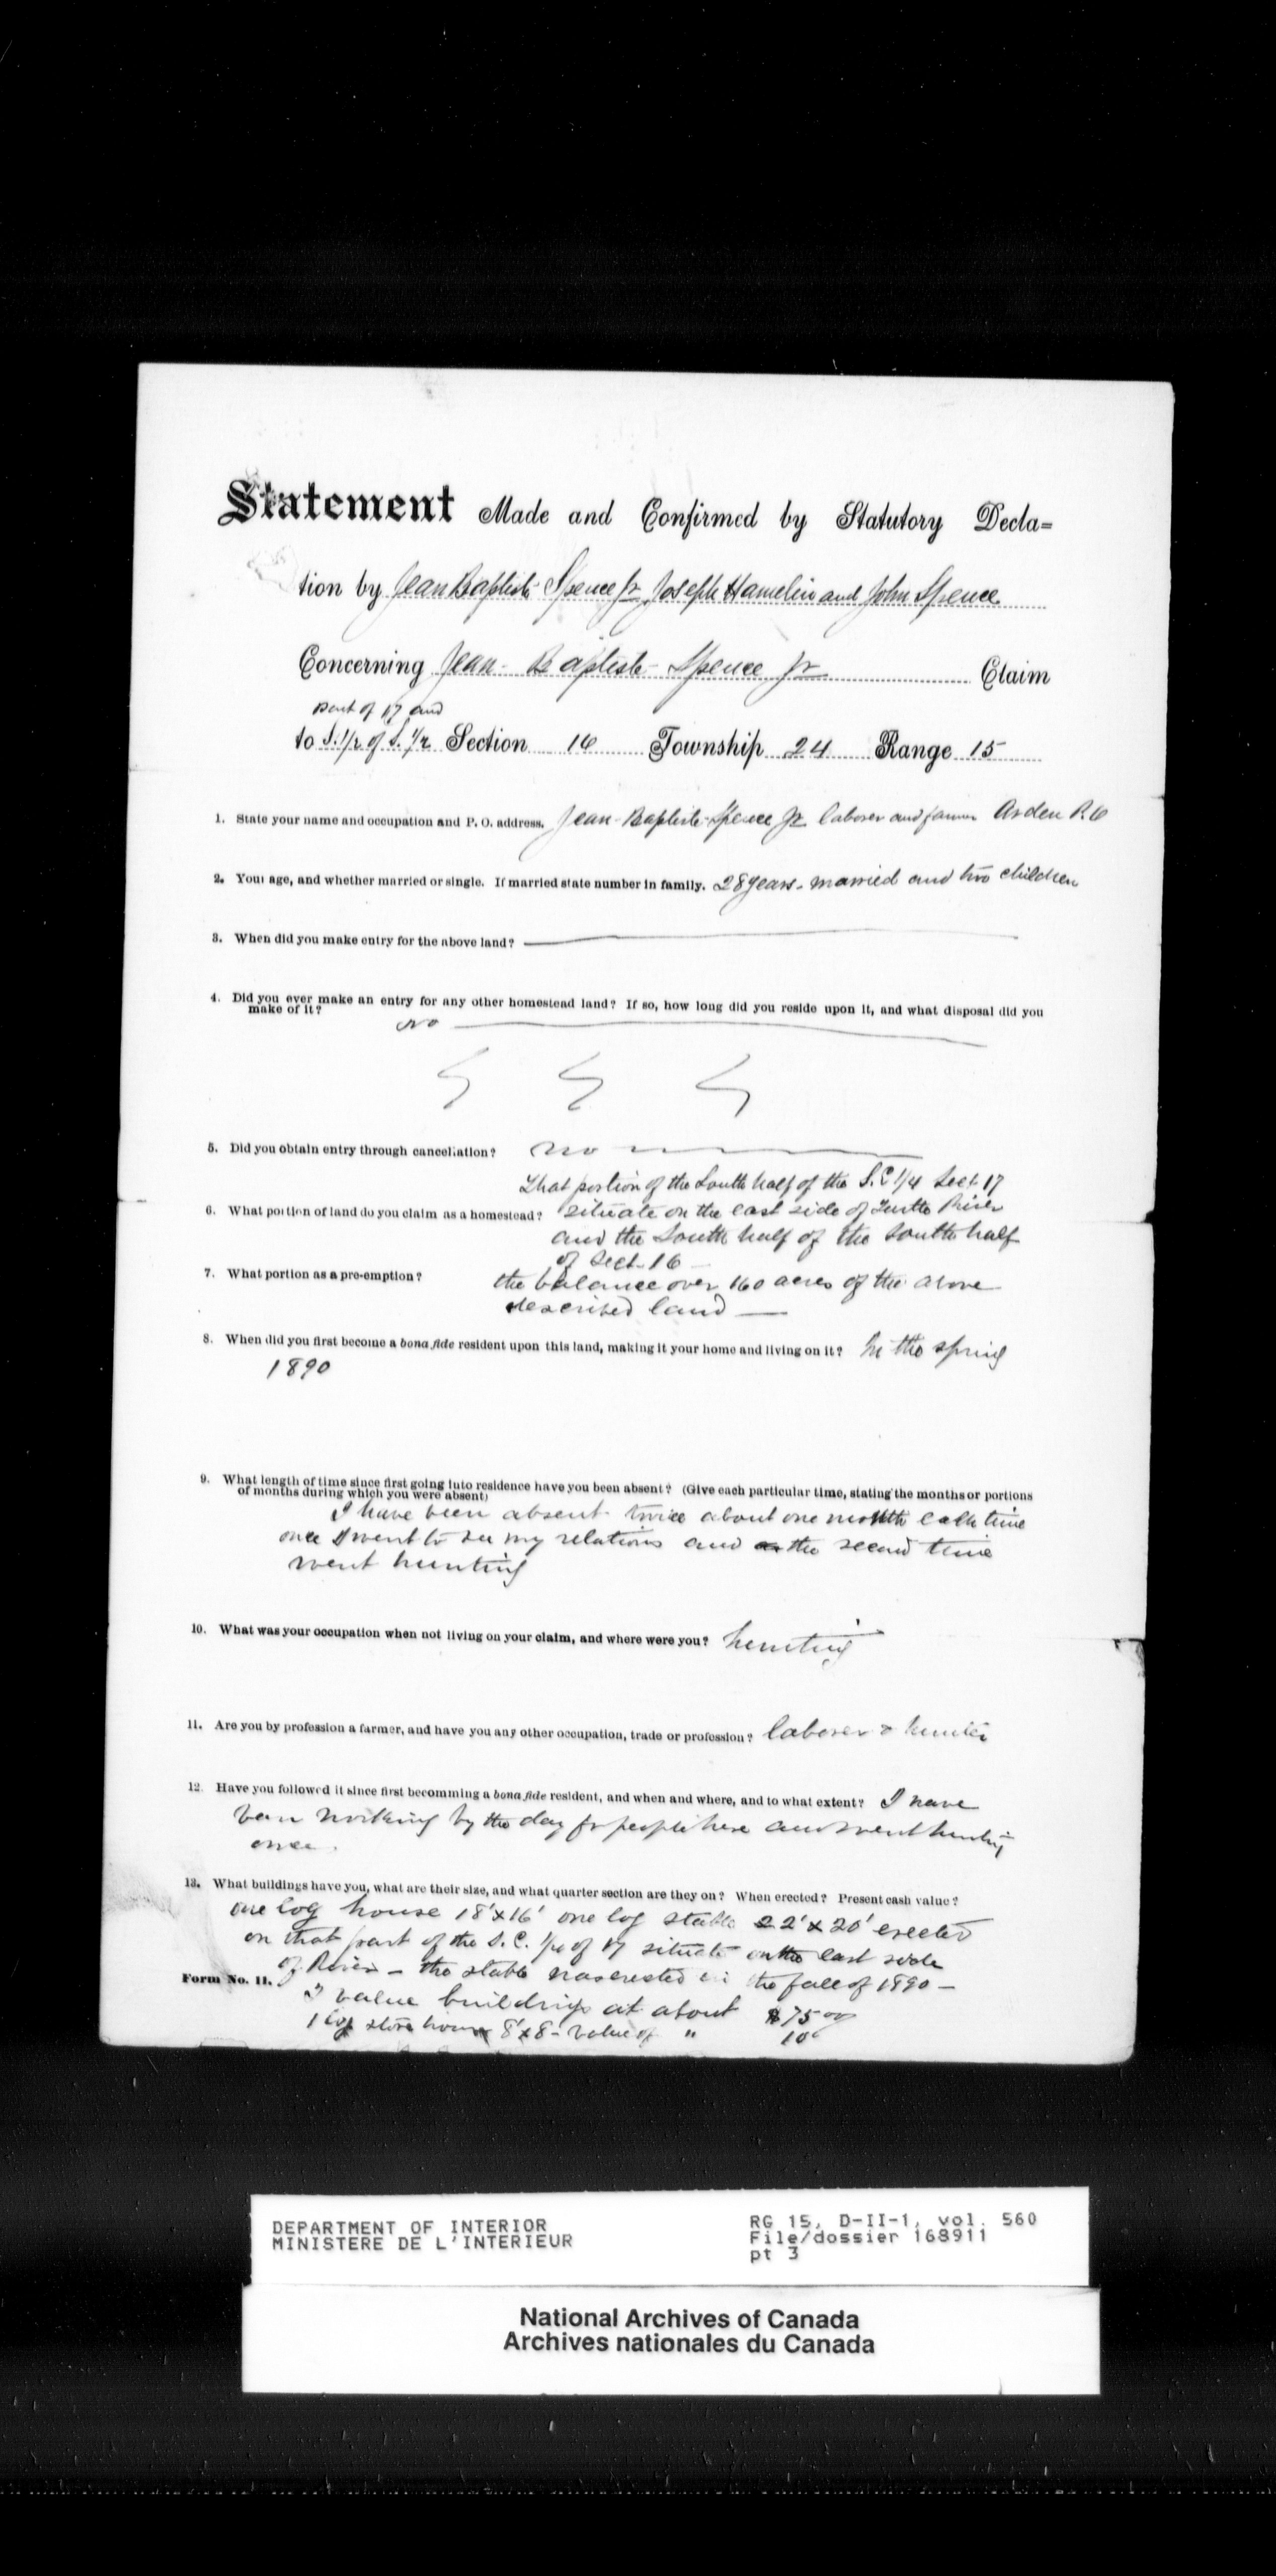 Statement Made and Confirmed by Statutory Decla=
tion by Jean Baptiste Spence Jr, Joseph Hamelin and John Spence
Concerning Jean-Baptiste Spence Jr Claim
part of 17 and
to S. 1/2 of S. 1/2 Section 16 Township 24 Range 15
1. State your name and occupation and P. O. address. Jean-Baptiste Spence Jr laborer and farmer Arden P.O
2. Your age, and whether married or single. If married state number in family. 28 years - married and two children
3. When did you make entry for the above land?
4. Did you ever make an entry for any other homestead land? If so, how long did you reside upon it, and what disposal did you
make of it?
no
5. Did you obtain entry through cancellation? no
That portion of the South half of the S.E 1/4 Sect 17
6. What portion of land do you claim as a homestead? situate on the east side of Turtle River
and the South half of the South half
of Sect. 16 -
7. What portion as a pre-emption? the balance over 160 acres of the above
described land —
8. When did you first become a bona fide resident upon this land, making it your home and living on it? In the spring
1890
9. What length of time since first going into residence have you been absent? (Give each particular time, stating the months or portions
of months during which you were absent)
I have been absent twice about one month each time
once I went to see my relations and the second time
went hunting
10. What was your occupation when not living on your claim, and where were you? hunting
11. Are you by profession a farmer, and have you any other occupation, trade or profession? laborer & hunter
12. Have you followed it since first becomming a bona fide resident, and when and where, and to what extent? I have
been working by the day for people here and went hunting
once.
13. What buildings have you, what are their size, and what quarter section are they on? When erected? Present cash value?
one log house 18'x16' one log stable 22'x20' erected
on that part of the S.E. 1/4 of 17 situate on the east side
of River - the stable was erected in the fall of 1890 -
Form No. 11.
I value buildings at about $75 00
1 log store house 8'x8 - value of " 10
DEPARTMENT OF INTERIOR
MINISTERE DE L'INTERIEUR
RG 15, D-II-1, vol. 560
File/dossier 168911
pt 3
National Archives of Canada
Archives nationales du Canada